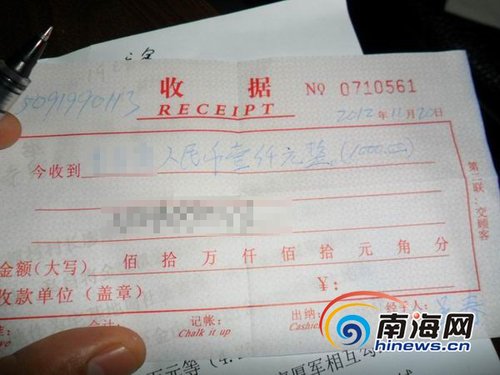 收 据 № 0710561
RECEIPT
5091990113
2012年11月20日
今收到 人民币壹仟元整(1000元)
第二联:交顾客
金额(大写) 佰 拾 万 仟 佰 拾 元 角 分
收款单位(盖章) ¥:
记帐: 出纳: 经手人
Chalk it up Cashier
南海网
hinews.cn
元等(4.
厚军相互勾